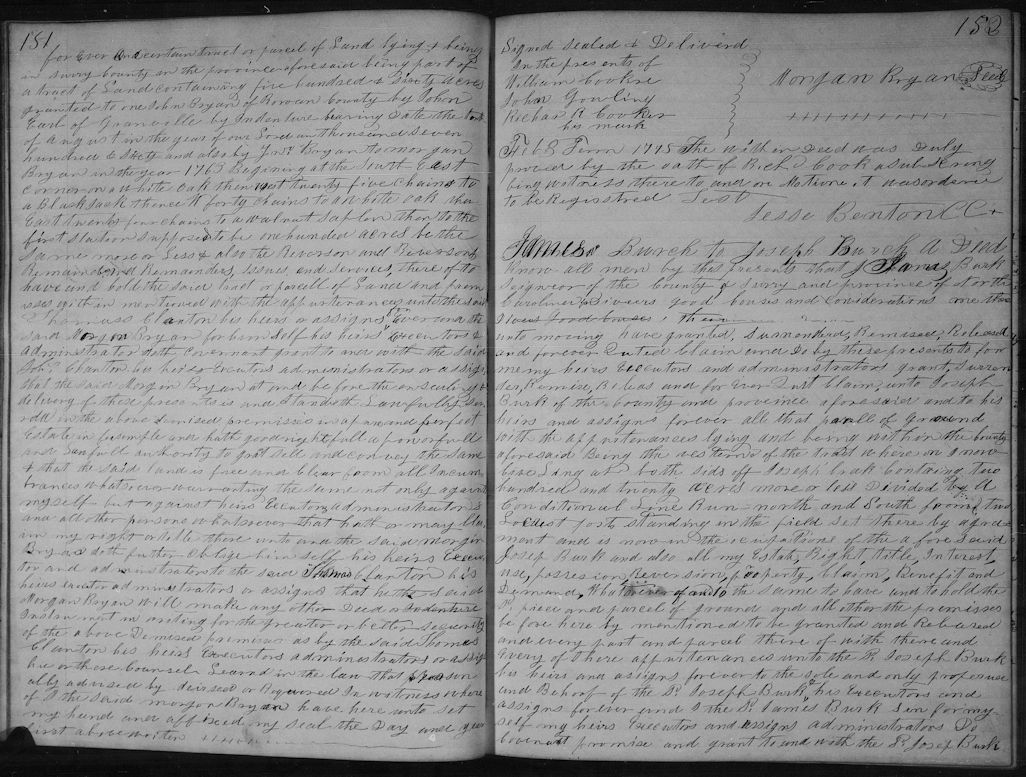 151
for Ever one certain tract or parcel of Land lying & being
in surry county in the province aforesaid being part of
a tract of Land containing five hundred & Sixty acres
granted to one John Bryan of Rowan County by John
Earl of Granville by Indenture bearing Date the
of August in the year of our Lord on thousand Seven
hundred & Sixty and also by Jno. Bryan to morgan
Bryan in the year 1763 Begening at the South East
Corner on a White Oak then west twenty five chains to
a Black Jack thence N forty chains to a white oak then
East twenty five chains to a walnut saplin then to the
first station supposed to be one hundred acres be the
Same more or Less & also the Reverson and Reversons
Remainder and Remainders, Issues, and services, there of to
have and hold the said tract or parcel of Land and prem
isses with in mentioned with the appurtenances unto the said
Thomass Clanton his heirs or assigns for Ever and the
said Morgan Bryan for him self his heirs Executors &
administrator doth Covenant grant to and with the said
Clanton his heirs Executors administrators or assigns
that the said Morgin Bryan at and be fore the ensealing &
delivery of these presents is and Standeth Lawfully
in the above demised premisses in apure and perfect
Estate in fee simple and hath good right full a power full
and Lawfull authority to grat Sell and convey the same
& that the said land is free and Clear from all Incum
brances whatsoever warranting the same not only against
myself but against heirs Executors administrators
and all other persons whatsrever that hath or may Clai
im my right or title there unto and the said morgin
Bryan doth further oblige him self his heirs Execu
tor and administrator to the said Thomas Clanton his
heirs executor administrators or assigns that he the said
Morgan Bryan will make any other Deed or Indenture
Instrument in writing for the greater or better security
of the above Demised premises as by the said Thomas
Clanton his heirs Executors administrators or assigns
his or those Counsel Learnd in the law that
ably advised by or Required In witness where
of I the said morgan Bryan have here unto set
my hand and affixed my seal the Day and year
first above writen
152
Signed sealed & Deliverd
In the presents of
William Cookre
John Gowling
Richar R Cooker
his mark
Morgan Bryan Seal
Feb Term 1775 The with in Deed was Duly
proved by the oath of Rich Cook a subscring
bing witness there to and on Motion, it was orderie
to be Registred Test
Jesse Benton CC
James Burch to Joseph Burch A Deed
Know all men by this Presents that I James Burk
Seignior of the County of Surry and province of North
Carolinea for divers good causes and Considerations me there
unto moving have granted, Surrendred, Remised, Released
and forever Quited Claim and Do by these presents for
me my heirs Executors and administrators grant, Surren
der, Remise, Releas and for Ever Quit Claim, unto Joseph
Burk of the County and province aforesaid and to his
heirs and assigns forever all that parsll of Ground
with the appurtenances lying and being with on the county
aforesaid Being the westerns of the tract where on I now
Lying at both sids off Joseph crak Containg two
hundred and twenty acres more or less Divided by A
Conditional Line Run north and South from two
Locust posts standing in the field set there by agree
ment and is now in the ocupations of the a fore said
Josep Burk and also all my Estate, Right, title, Interest,
use, possesion, Reversion, property, Claim, Benefit and
Demand, Whatsoever of and to the same to have and to hold the
Sd. piece and parcel of ground and all other the premisses
be fore here by mentioned to be granted and Released
and every part and parcel there of with there and
Every of there appurtenances unto the Sd. Joseph Burk
his heirs and assigns forever to the sole and only proper use
and Behoof of the Sd. Joseph Burk his Executors and
assigns forever and I the Sd. James Burk Sen for my
self my heirs Executors and assigns administrators Do
Covenant promise and grant to and with the Sd. Josep Burk